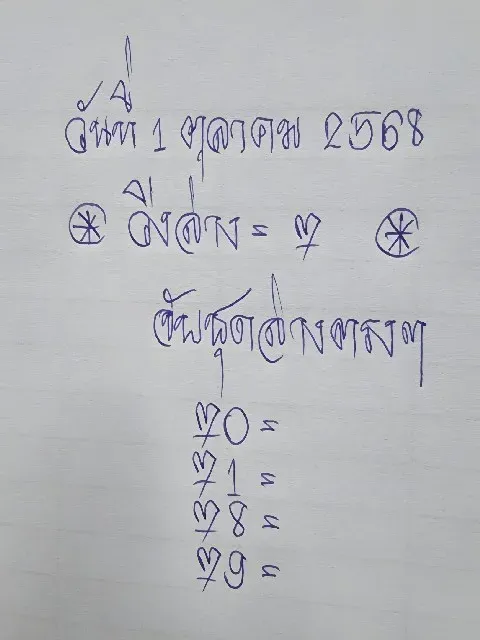 วันที่ 1 ตุลาคม 2568
วิ่งล่าง = 7
จับชุดล่างตรงๆ
70 =
71 =
78 =
79 =